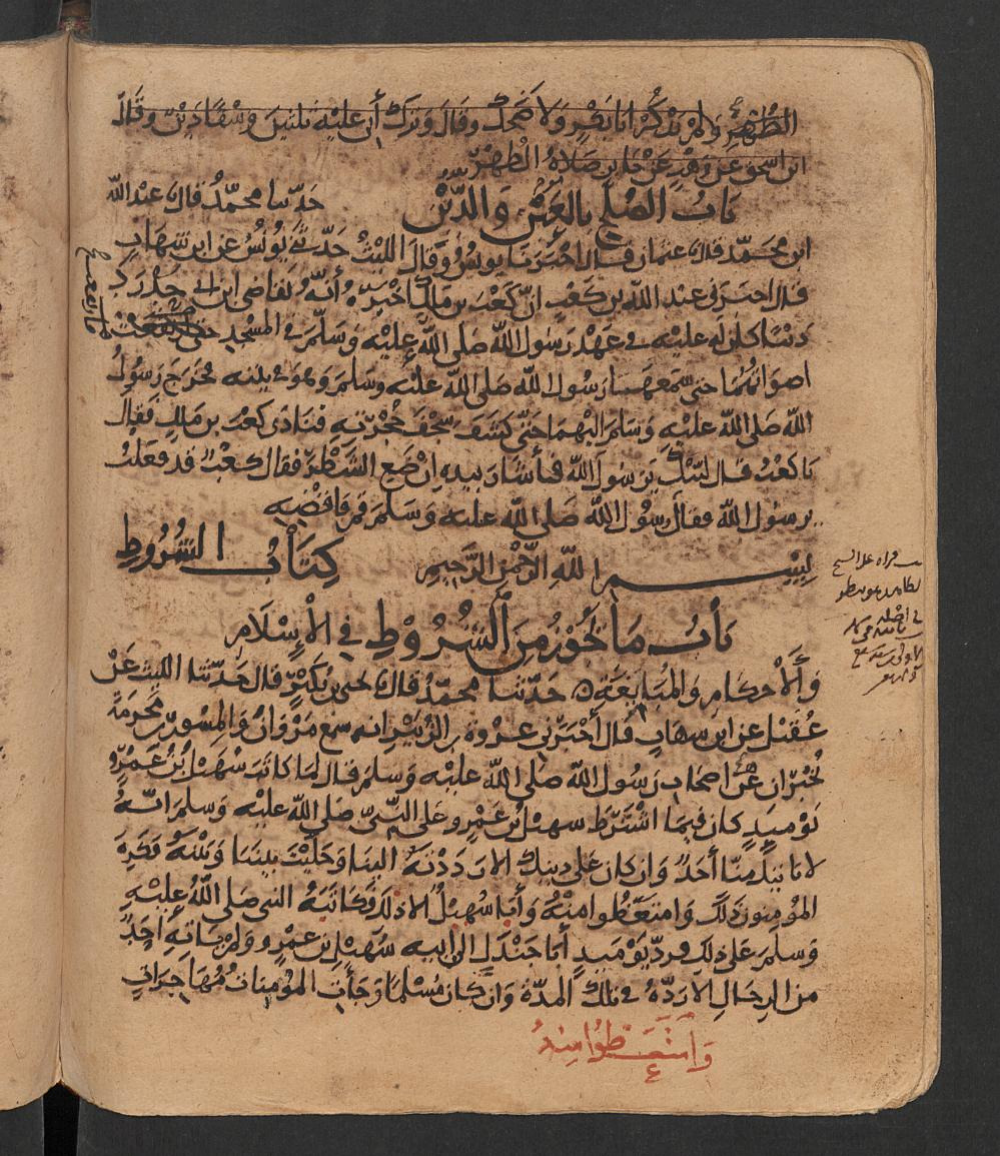 الظهر ولم يذكر ابا بكر ولا ضحك وقال وترك أبي عليه ثلثين وسقا دينا وقال
ابن اسحق عن وهب عن جابر صلاة الظهر
باب الصلح بالعين والدين حدثنا محمد قال عبد الله
ابن محمد قال عثمان قال اخبرنا يونس وقال الليث حدثني يونس عن ابن شهاب
قال اخبرني عبد الله بن كعب ان كعب بن مالك اخبره أنه تقاضى ابن ابي حدرد
دينا كان له عليه في عهد رسول الله صلى الله عليه وسلم في المسجد حتى ارتفعت
اصواتهما حتى سمعهما رسول الله صلى الله عليه وسلم وهو في بيته فخرج رسول
الله صلى الله عليه وسلم اليهما حتى كشف سجف حجرته فنادى كعب بن مالك فقال
يا كعب قال لبيك يرسول الله فأشار بيده ان ضع الشطر فقال كعب قد فعلت
يرسول الله فقال رسول الله صلى الله عليه وسلم قم فاقضه
بسم الله الرحمن الرحيم كتاب الشروط
باب ما يجوز من الشروط في الإسلام
والأحكام والمبايعة حدثنا محمد قال يحيى بن بكير قال حدثنا الليث عن
عقيل عن ابن شهاب قال أخبرني عروة بن الزبير انه سمع مروان والمسور بن مخرمة
يخبران عن اصحاب رسول الله صلى الله عليه وسلم قال لما كاتب سهيل بن عمرو
يوميد كان فيما اشترط سهيل بن عمرو على النبي صلى الله عليه وسلم انه
لا ياتيك منا أحد وان كان على دينك الا رددته الينا وخليت بيننا وبينه فكره
المؤمنون ذلك وامتعظوا منه وأبا سهيل الا ذلك فكاتبه النبي صلى الله عليه
وسلم على ذلك فرد يوميد أبا جندل الى ابيه سهيل بن عمرو ولم ياته أحد
من الرجال الا رده في تلك المدة وان كان مسلما وجأت المؤمنات مهاجرات
وامتعظوا منه